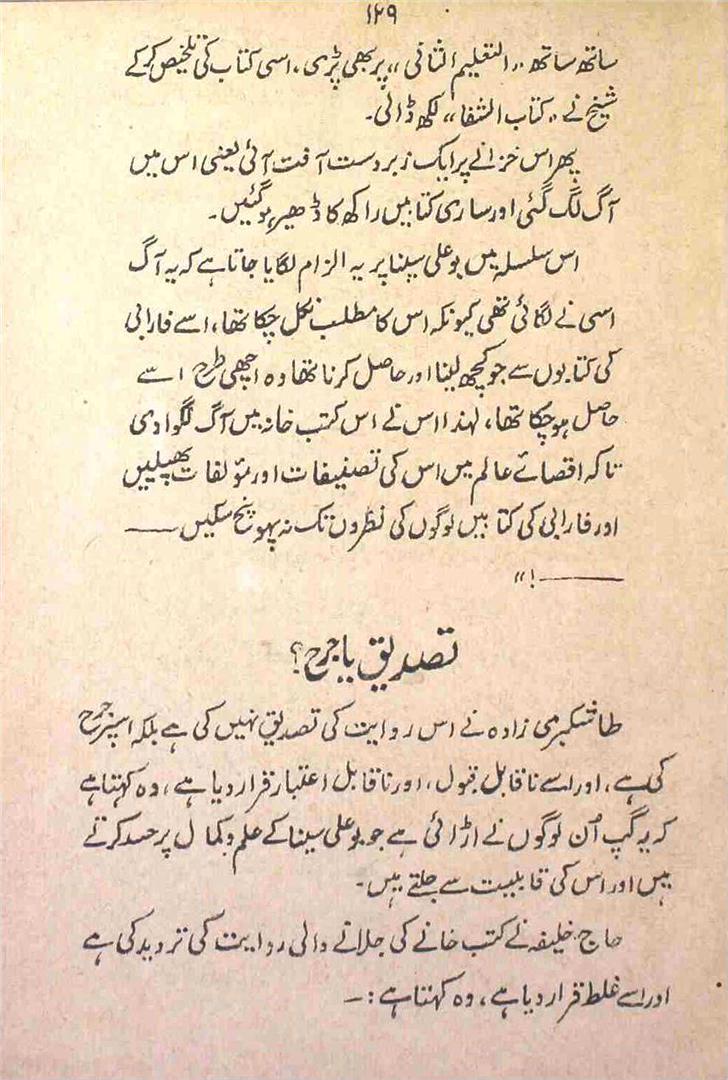 ۱۲۹
ساتھ ساتھ "التعلیم الثانی" پر بھی پڑی، اسی کتاب کی تلخیص کرکے
شیخ نے "کتاب الشفا" لکھ ڈالی۔
پھر اس خزانے پر ایک زبردست آفت آئی یعنی اس میں
آگ لگ گئی اور ساری کتابیں راکھ کا ڈھیر ہوگئیں۔
اس سلسلہ میں بوعلی سینا پر یہ الزام لگایا جاتا ہے کہ یہ آگ
اسی نے لگائی تھی کیونکہ اس کا مطلب نکل چکا تھا، اسے فارابی
کی کتابوں سے جو کچھ لینا اور حاصل کرنا تھا وہ اچھی طرح اسے
حاصل ہوچکا تھا، لہٰذا اس نے اس کتب خانہ میں آگ لگوا دی
تاکہ اقصائے عالم میں اس کی تصنیفات اور مؤلفات پھیلیں
اور فارابی کی کتابیں لوگوں کی نظروں تک نہ پہونچ سکیں ——
——!"
تصدیق یا جرح؟
طاشکبری زادہ نے اس روایت کی تصدیق نہیں کی ہے بلکہ اسپر جرح
کی ہے، اور اسے ناقابل قبول، اور ناقابل اعتبار قرار دیا ہے، وہ کہتا ہے
کہ یہ گپ اُن لوگوں نے اڑائی ہے جو بوعلی سینا کے علم و کمال پر حسد کرتے
ہیں اور اس کی قابلیت سے جلتے ہیں۔
حاج خلیفہ نے کتب خانے کی جلانے والی روایت کی تردید کی ہے
اور اسے غلط قرار دیا ہے، وہ کہتا ہے :۔